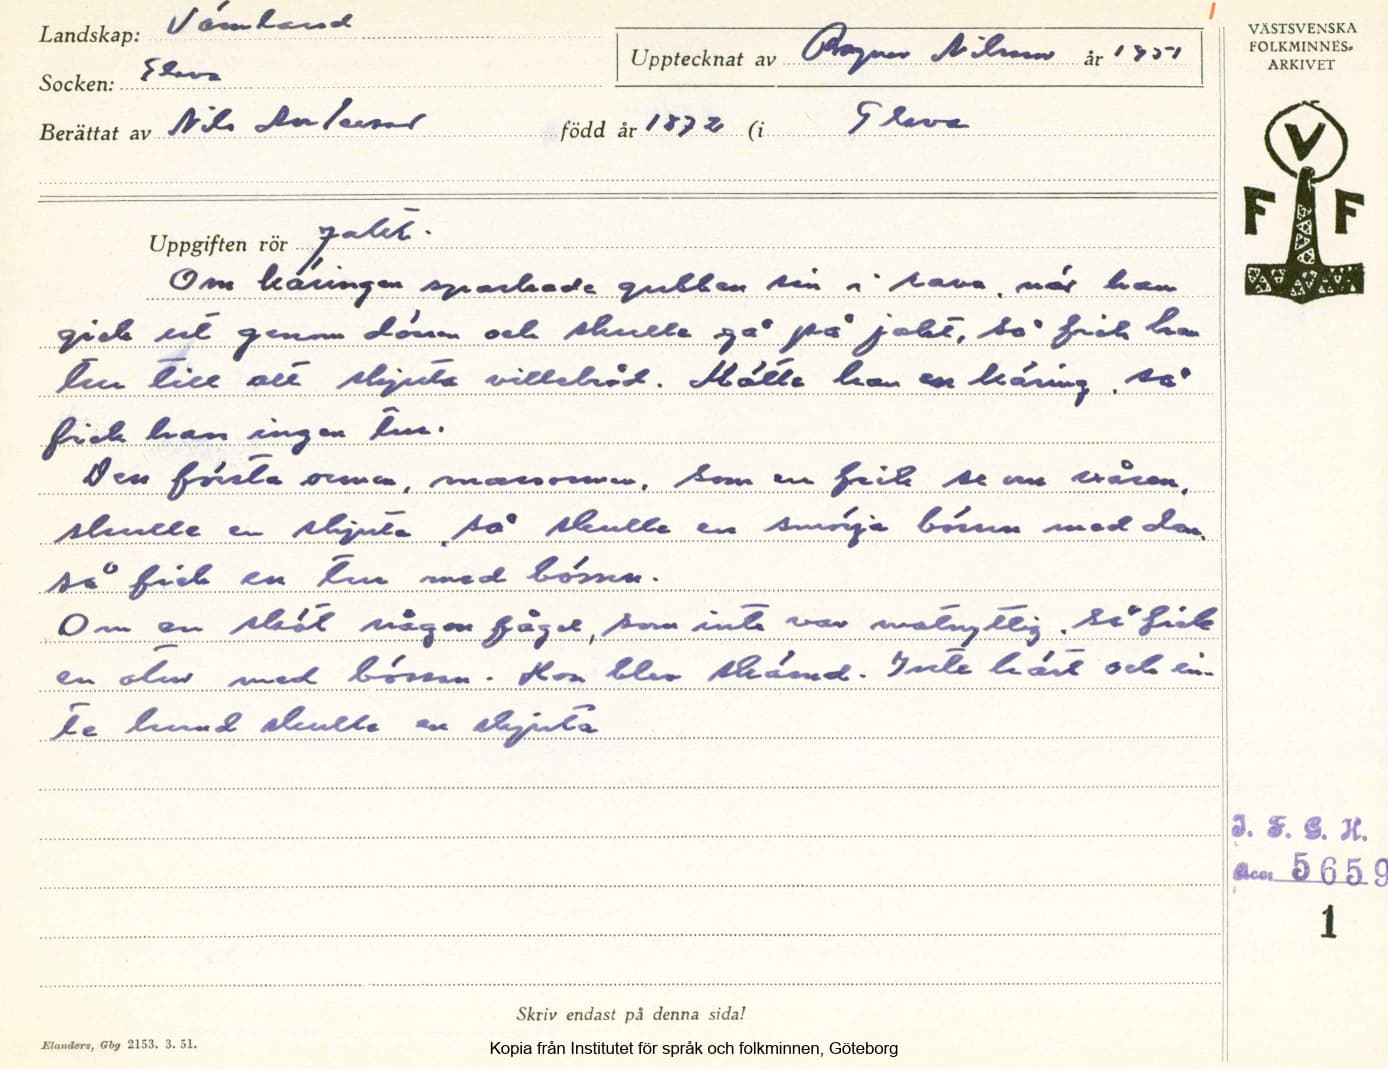 Landskap: Värmland
Upptecknat av Ragnar Nilsson år 1951
Socken: Glava
Berättat av Nils född år 1872 (i Glava
Uppgiften rör Jakt.
Om käringen sparkade gubben sin i rava, när han
gick ut genom dörren och skulle gå på jakt, så fick han
tur till att skjuta villebråd. Mötte han en käring, så
fick han ingen tur.
Den första ormen, marsormen, som en fick se om våren,
skulle en skjuta, så skulle en smörja bössan med den,
så fick en tur med bössan.
Om en sköt någon fågel, som inte var matnyttig, så fick
en otur med bössan. Hon blev skämd. Inte katt och in-
te hund skulle en skjuta
Skriv endast på denna sida!
Elanders, Gbg 2153. 3. 51.
Kopia från Institutet för språk och folkminnen, Göteborg
VÄSTSVENSKA
FOLKMINNES-
ARKIVET
V
F F
I. F. G. H.
Acc. 5659
1